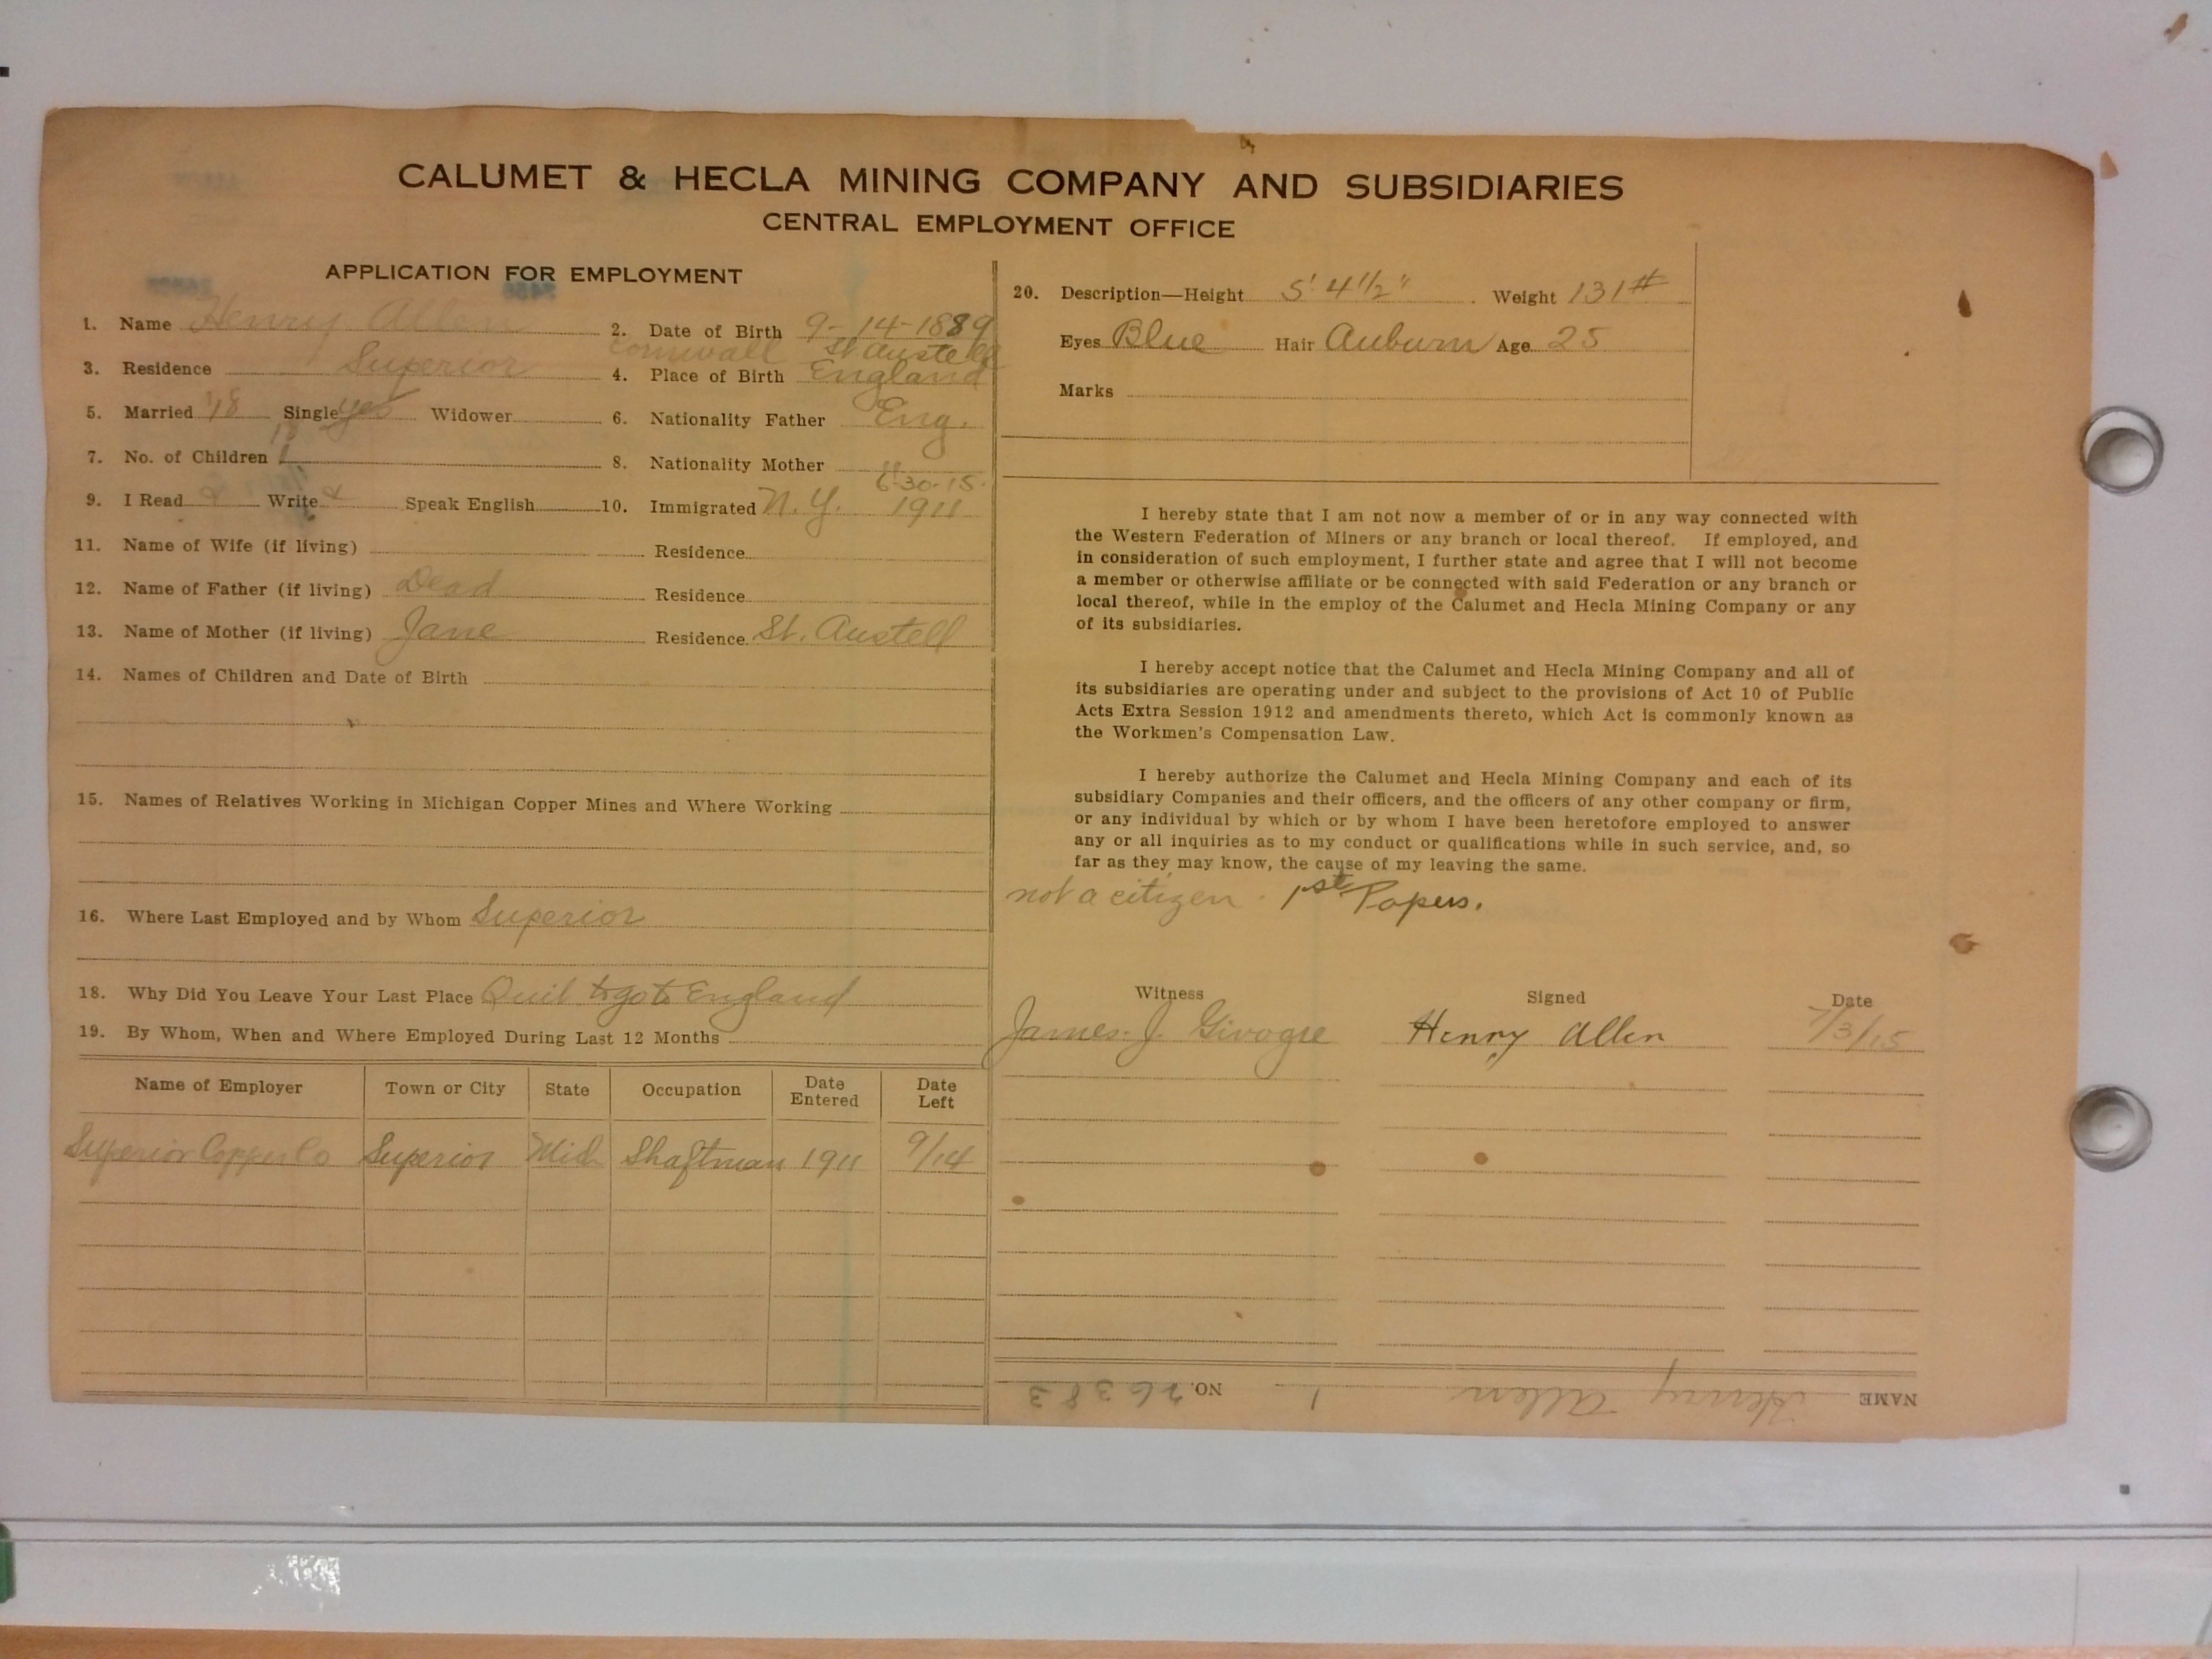 CALUMET & HECLA MINING COMPANY AND SUBSIDIARIES
CENTRAL EMPLOYMENT OFFICE
APPLICATION FOR EMPLOYMENT
1. Name Henry Allen
2. Date of Birth 9-14-1889
Cornwall St. Austell
3. Residence Superior
4. Place of Birth England
5. Married '18 Single yes Widower
6. Nationality Father Eng.
18
7. No. of Children 1
8. Nationality Mother "
6-30-15.
9. I Read Write Speak English
10. Immigrated N.Y. 1911
11. Name of Wife (if living) Residence
12. Name of Father (if living) Dead Residence
13. Name of Mother (if living) Jane Residence St. Austell
14. Names of Children and Date of Birth
15. Names of Relatives Working in Michigan Copper Mines and Where Working
16. Where Last Employed and by Whom Superior
18. Why Did You Leave Your Last Place Quit to go to England
19. By Whom, When and Where Employed During Last 12 Months
Name of Employer Town or City State Occupation Date Entered Date Left
Superior Copper Co Superior Mich Shaftman 1911 9/14
20. Description—Height 5' 4 1/2" Weight 131#
Eyes Blue Hair Auburn Age 25
Marks
I hereby state that I am not now a member of or in any way connected with
the Western Federation of Miners or any branch or local thereof. If employed, and
in consideration of such employment, I further state and agree that I will not become
a member or otherwise affiliate or be connected with said Federation or any branch or
local thereof, while in the employ of the Calumet and Hecla Mining Company or any
of its subsidiaries.
I hereby accept notice that the Calumet and Hecla Mining Company and all of
its subsidiaries are operating under and subject to the provisions of Act 10 of Public
Acts Extra Session 1912 and amendments thereto, which Act is commonly known as
the Workmen's Compensation Law.
I hereby authorize the Calumet and Hecla Mining Company and each of its
subsidiary Companies and their officers, and the officers of any other company or firm,
or any individual by which or by whom I have been heretofore employed to answer
any or all inquiries as to my conduct or qualifications while in such service, and, so
far as they may know, the cause of my leaving the same.
not a citizen. 1st Papers.
Witness Signed Date
James J. Givogre Henry Allen 7/3/15
NAME Henry Allen 1 NO. 26383